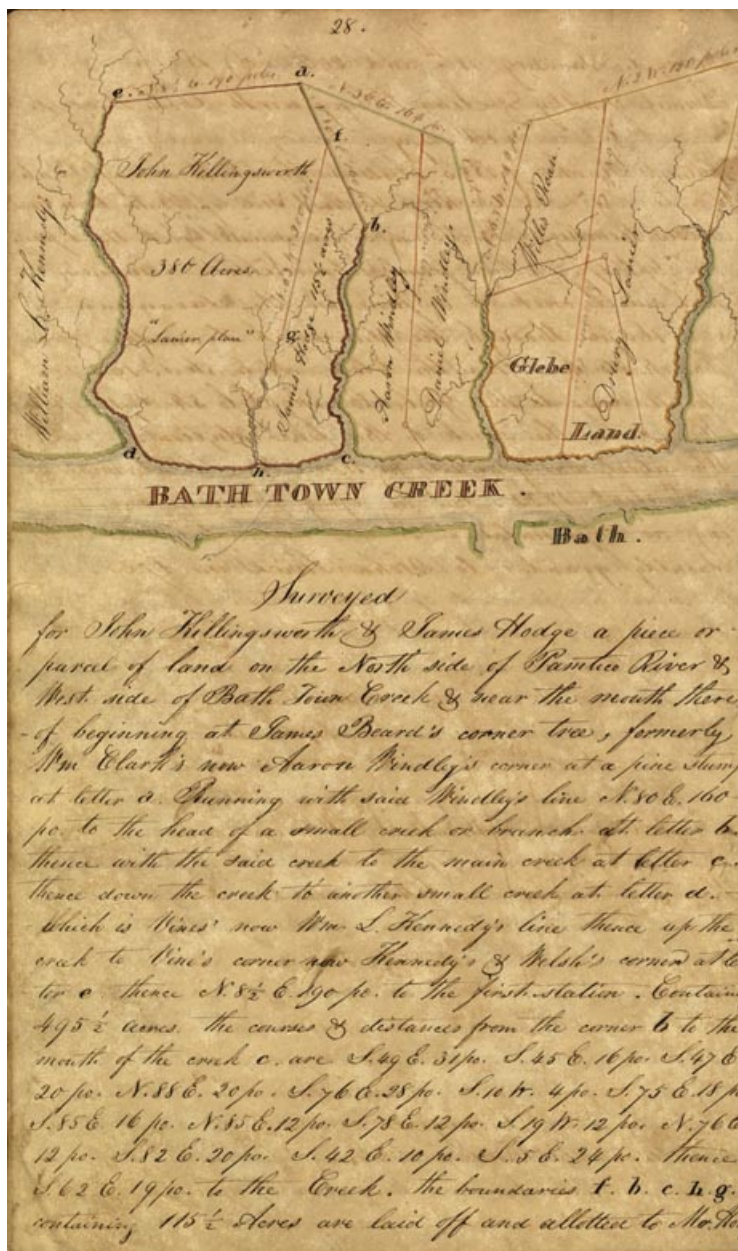 28.
a.
e.
N. 8½ E. 190 poles
N. 36 E. 164 po.
N. 5 W. 190 poles
f.
John Killingsworth
b.
Willis Roan
William L. Kennedy's
380 Acres
"Lanier plan"
g
James Hodge 115½ acres
Aaron Windley
Daniel Windley's
Glebe
Drury Lanier
Land.
d
h.
c.
BATH TOWN CREEK.
Bath.
Surveyed
for John Killingsworth & James Hodge a piece or
parcel of land on the North side of Pamtico River &
West side of Bath Town Creek & near the mouth there
-of beginning at James Beard's corner tree, formerly
Wm Clark's now Aaron Windley's corner at a pine stump
at letter a. Running with said Windley's line N. 80 E. 160
po. to the head of a small creek or branch at letter b.
thence with the said creek to the main creek at letter c.
thence down the creek to another small creek at letter d.
which is Vines' now Wm. L. Kennedy's line thence up the
creek to Vine's corner now Kennedy's & Welsh's corner at let
ter e thence N. 8½ E. 190 po. to the first station. Contain
495½ acres. the courses & distances from the corner b to the
mouth of the creek c. are S. 49 E. 31 po. S. 45 E. 16 po. S. 47 E
20 po. N. 88 E. 20 po. S. 76 E. 28 po. S. 10 W. 4 po. S. 75 E. 18 p
S. 85 E 16 po. N. 85 E. 12 po. S. 78 E. 12 po. S. 19 W. 12 po. N. 76 E
12 po. S. 82 E. 20 po. S. 42 E. 10 po. S. 5 E. 24 po. thence
S. 62 E. 19 po. to the Creek. the boundaries f. b. c. h. g.
containing 115½ Acres are laid off and allotted to Mr. Ho